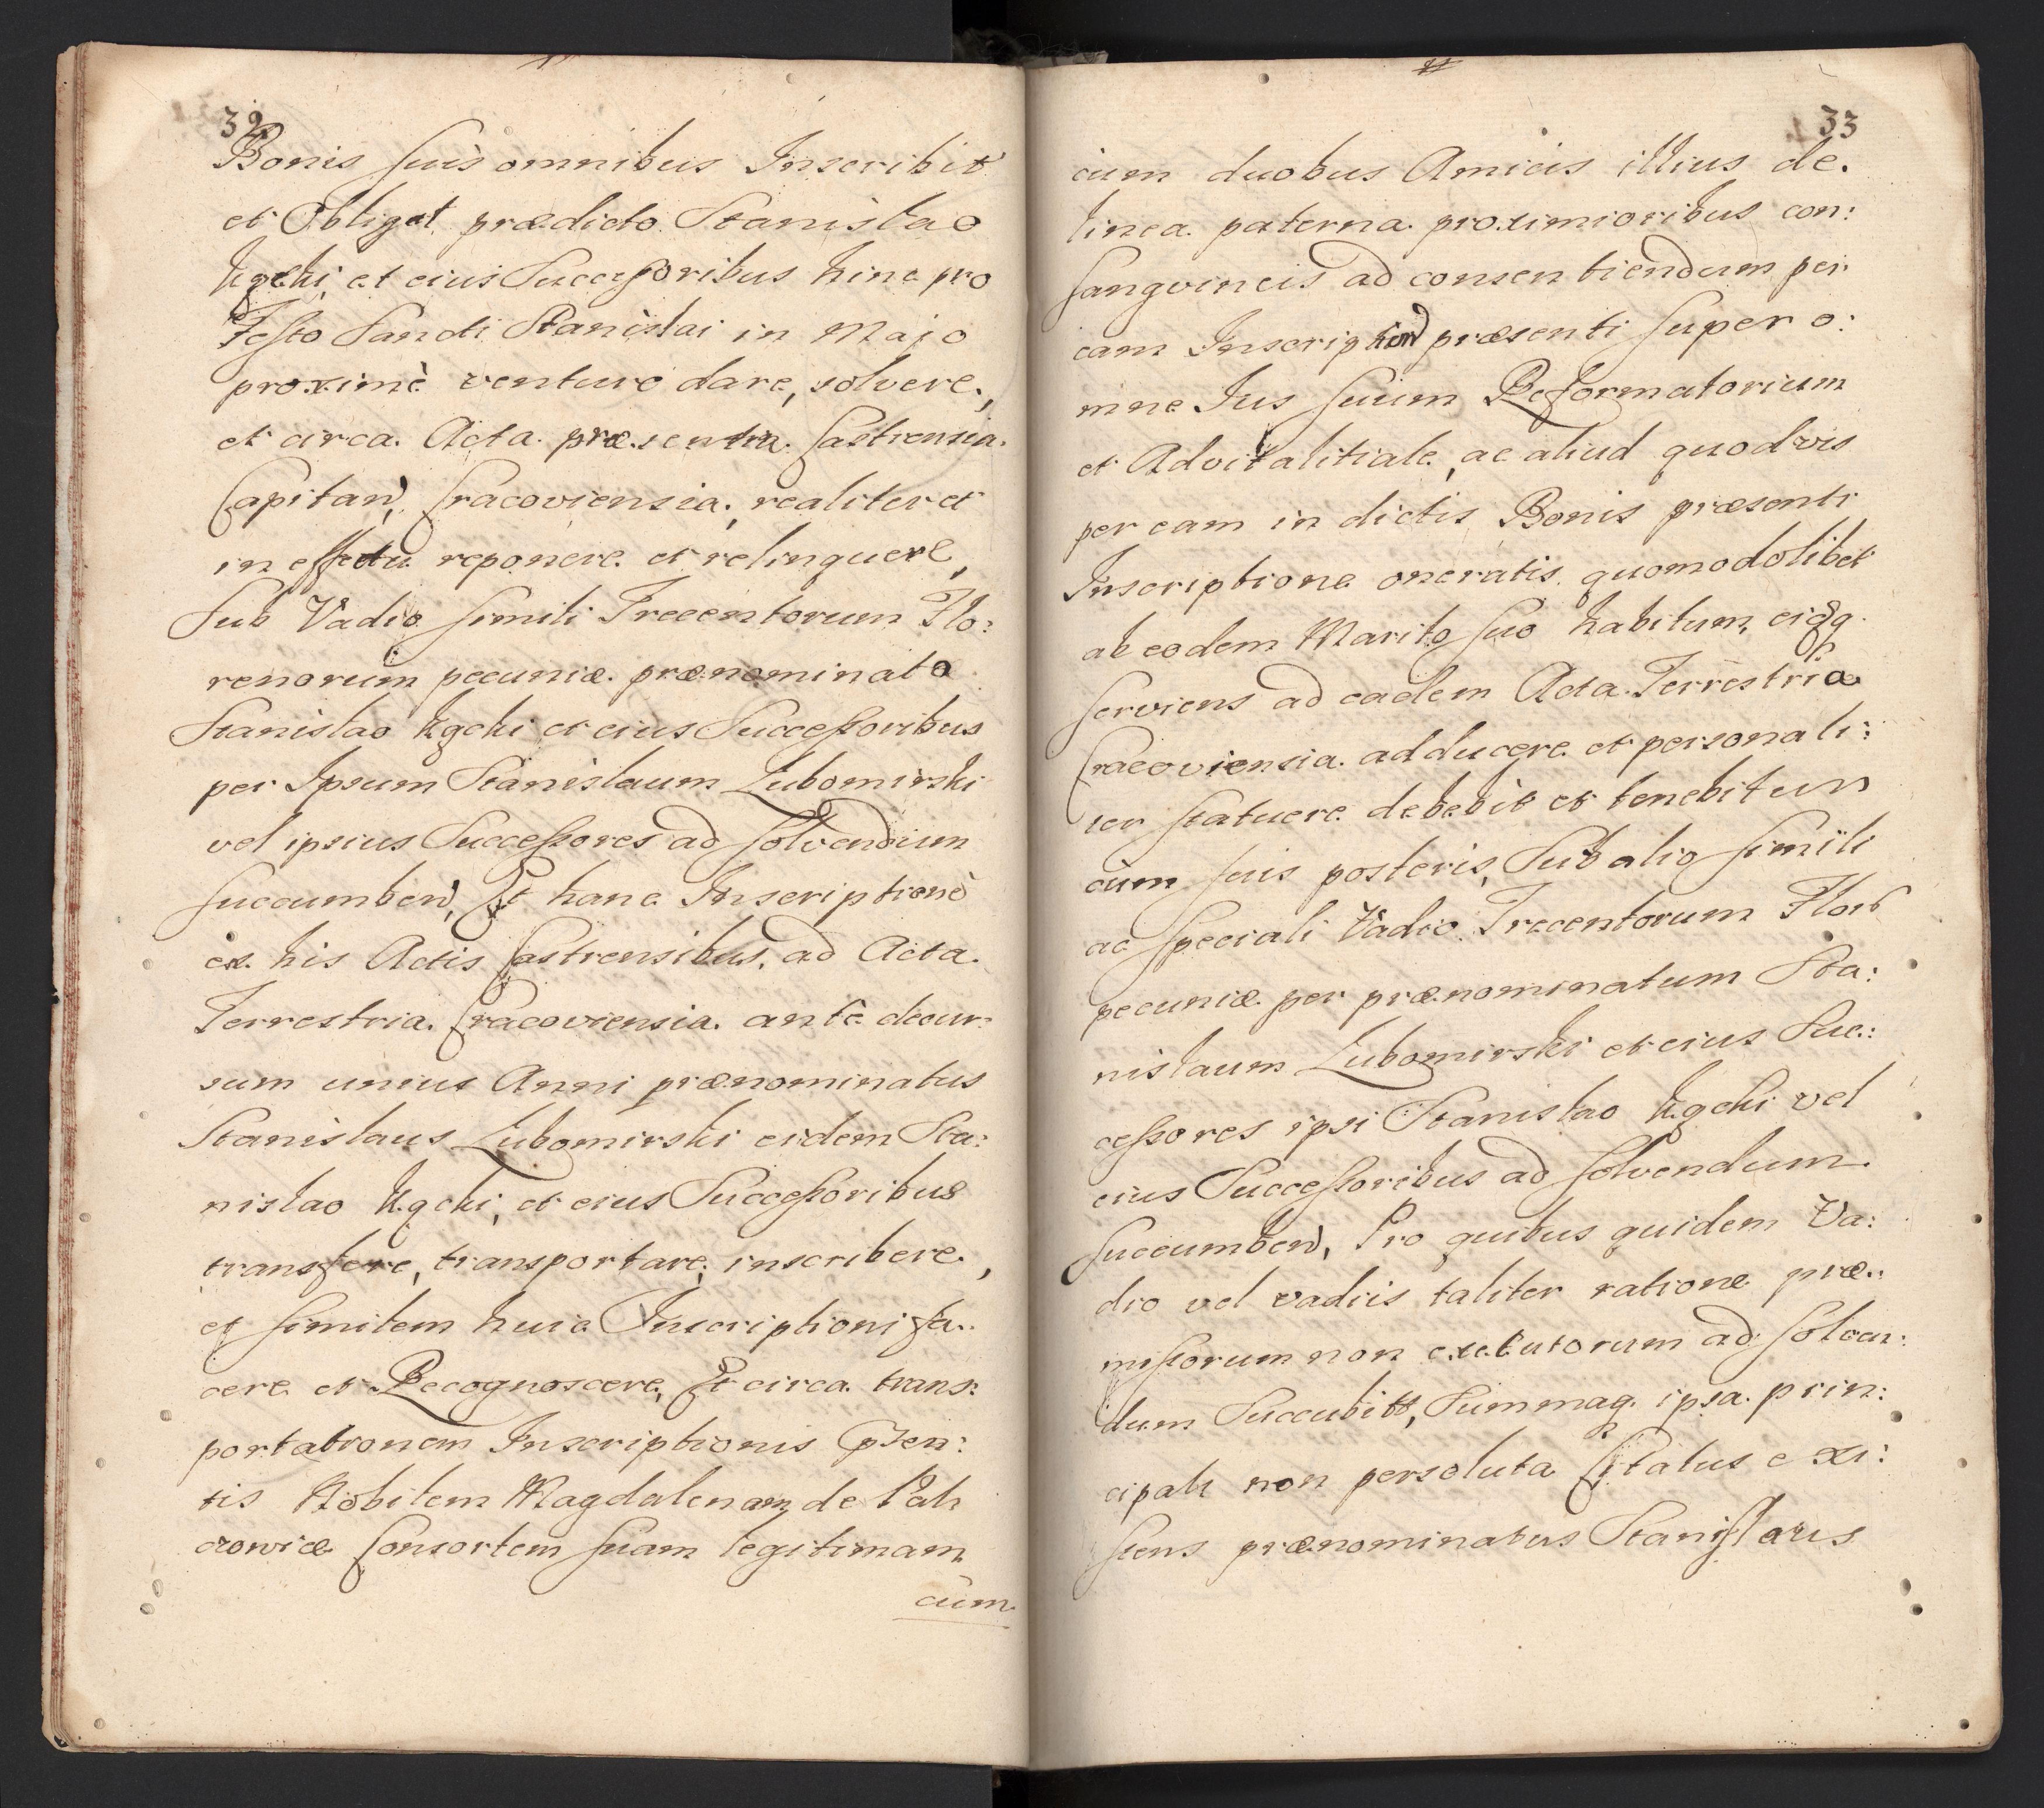 32
Bonis suis omnibus Inscribit
et Obligat prædicto Stanislao
Kęcki et eius Successoribus hinc pro
Festo Sancti Stanislai in Majo
proximè venturo dare, solvere,
et circa Acta præsentia Castrensia
Capitan, Cracoviensia, realiter et
in effectu reponere et relinquere,
Sub Vadio simili Trecentorum Flo:
renorum pecuniæ prænominato
Stanislao Kęcki et eius Successoribus
per Ipsum Stanislaum Lubomirski
vel ipsius Successores ad solvendum
succumben, Et hanc Inscriptionè
ex his Actis Castrensibus, ad Acta
Terrestria Cracoviensia antè decur:
sum unius Anni prænominatus
Stanislaus Lubomirski eidem Sta:
nislao Kęcki, et eius Successoribus
transferre, transportare, inscribere,
et similem huic Inscriptioni fa:
cere et Recognoscere, Et circa trans:
portationem Inscriptionis pñsen:
tis Nobilem Magdalenam de Pali
czowicæ Consortem suam legitimam
cum
33
cum duobus Amicis illius de
linea paterna proximioribus con:
sangvineis ad consentiendum per
eam Inscription præsenti super o:
mne Jus suum Reformatorium
et Advitalitiale, ac aliud quodvis
per eam in dictis Bonis præsenti
Inscriptione oneratis quomodolibet
ab eodem Marito suo habitum, eiqq
serviens ad eadem Acta Terrestria
Cracoviensia adducere et personali:
ter statuere debebit et tenebitur
cum suis posteris, Sub alio simili
ac speciali Vadio Trecentorum Flor
pecuniæ per prænominatum Sta:
nislaum Lubomirski et eius Suc:
cessores ipsi Stanislao Kęcki vel
eius Successoribus ad solvendum
succumben, Pro quibus quidem Va:
dio vel vadiis taliter ratione præ:
missorum non executorum ad solven:
dum Succubitt, Summaq ipsa prin:
cipali non persoluta Citatus e xi:
stens prænominatus Stanislaus